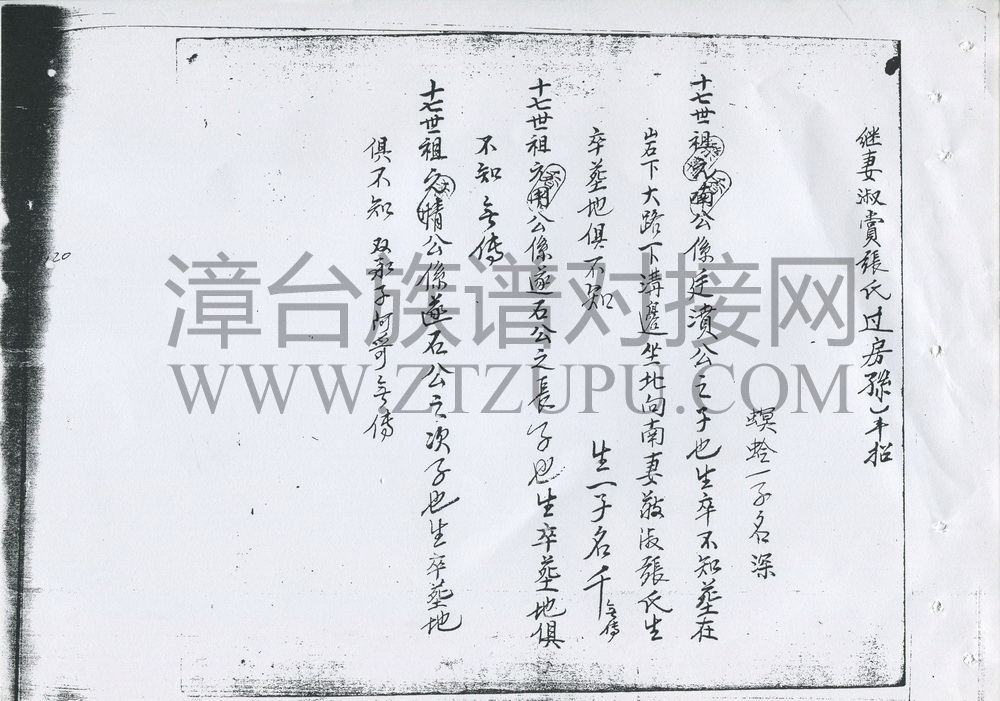 继妻淑賞張氏过房孫丰招
螟蛉一子名深
十七世祖元南公係廷濱公之子也生卒不知墓在
岩下大路下溝邊坐北向南妻敬淑張氏生
卒墓地俱不知 生一子名千 無傳
十七世祖元用公係遂石公之長子也生卒墓地俱
不知無傳
十七世祖元晴公係遂石公之次子也生卒墓地
俱不知 双承子 無傳
120
漳台族谱对接网
WWW.ZTZUPU.COM